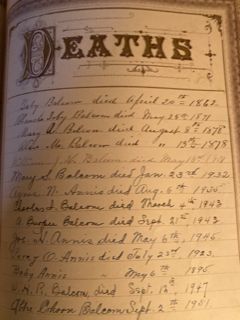 DEATHS
Baby Balcom died April 20th 1862.
Toby Balcom died May 28th 1871
Mary A. Balcom died August 8th 1878
Mc. Balcom died " 13th 1878
William J. N. Balcom died May 15th
Mary S. Balcom died Jan. 23rd 1932
N. Annis died Aug. 6th 1935
Charles L. Balcom died March 4th 1943
A. Burpee Balcom died Sept. 21st 1943
Jos. H Annis died May 6th, 1945
Percy O. Annis died July 23rd 1923.
Baby Annis " May 6th 1895
W. H. R. Balcom, died Sept. 12th 1947
Balcom Sept. 2nd 1951.